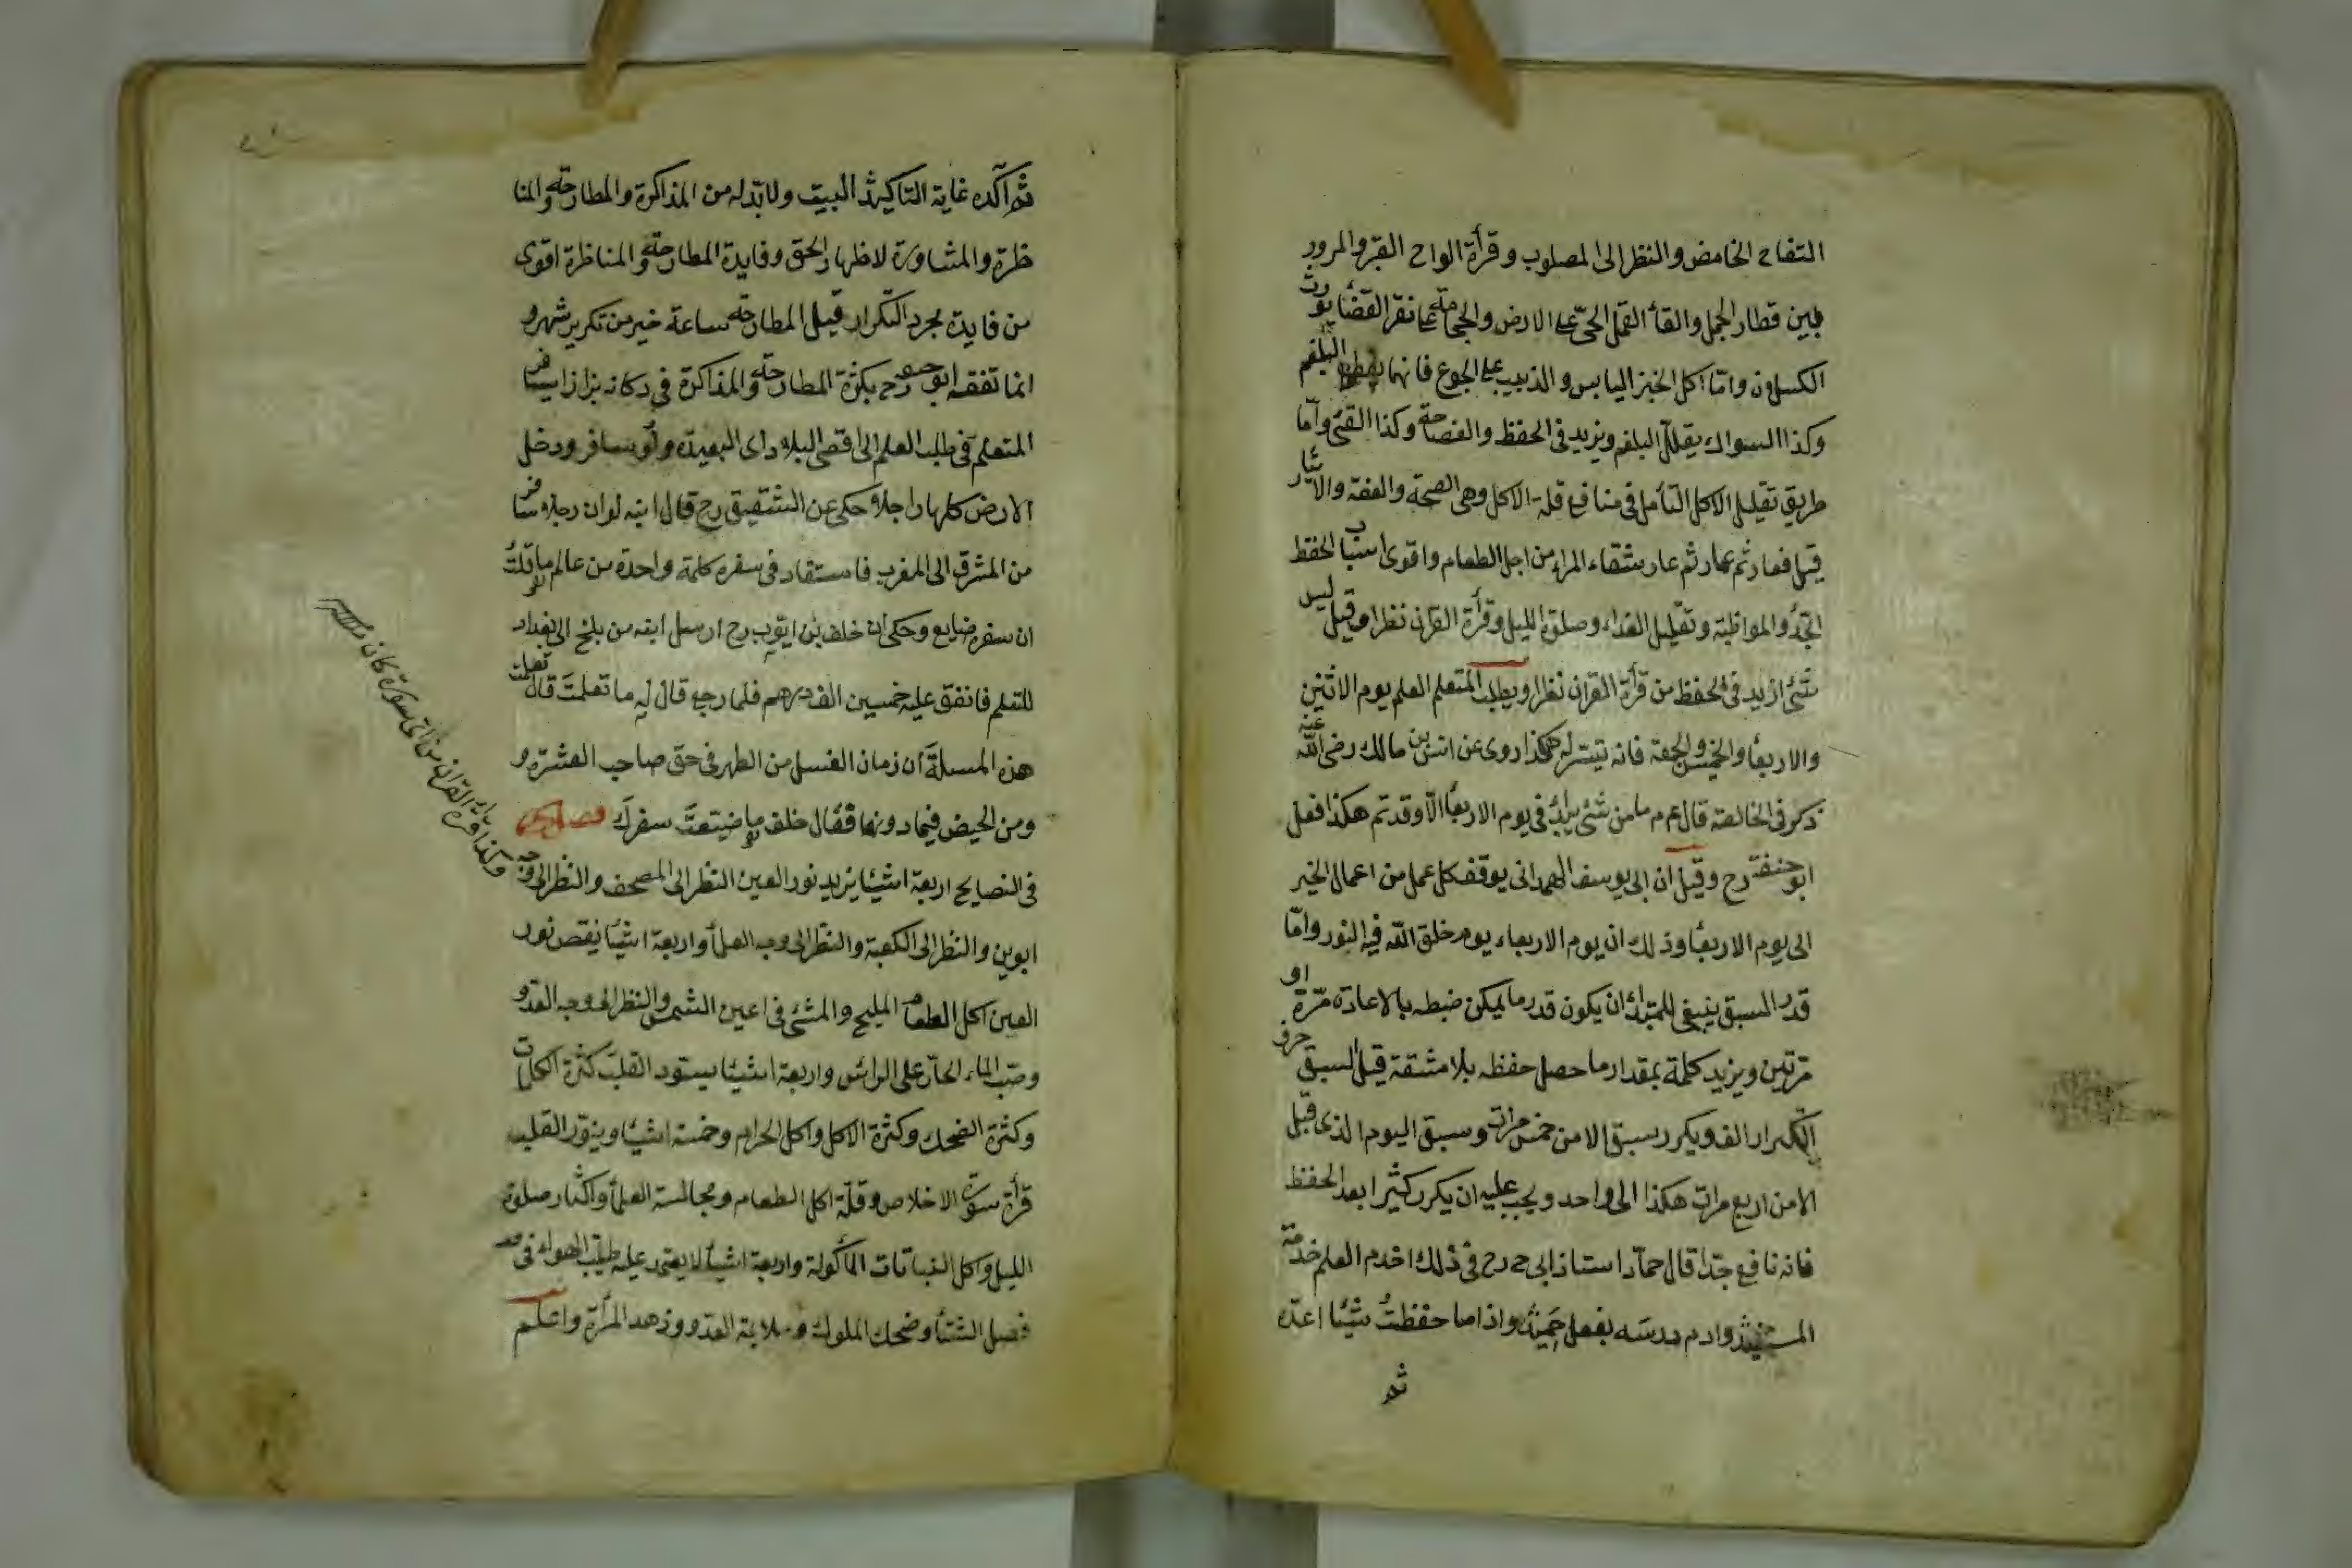 التفاح الخامض والنظر الى المصلوب وقرأة الواح القبر والمرور
بين قطار الجمل والقأ القمل الحىّ على الارض والحجامة على نقر القفا يورث
الكسلان وامّا اكل الخبز اليابس والذبيب على الجوع فانهما البلغم
وكذا السواك يقلل البلغم ويزيد فى الحفظ والفصاحة وكذا القئ وامّا
طريق تقليل الاكل التأمل فى منافع قلة الاكل وهى الصحة والعفة والايثار
قيل فعار ثم عار ثم عار شقاء المراء من اجل الطعام واقوى اسباب الحفظ
الجدّ والمواظبة وتقليل الغذاء وصلوة الليل وقرأة القران نظرا وقيل ليس
شئ ازيد فى الحفظ من قرأة القران نظرا ويطلب المتعلم العلم يوم الاثنين
والاربعأ والخميس والجمعة فانه تيسّر له هكذا روى عن انس بن مالك رضى الله عنه
ذكر فى الخالصة قال عم م مامن شئ بدئ فى يوم الاربعأ الّا وقد تم هكذا فعل
ابو حنيفة رح وقيل ان ابى يوسف الهمدانى يوقف كل عمل من اعمال الخير
الى يوم الاربعأ وذلك ان يوم الاربعاء يوم خلق اللّه فيه النور وامّا
قدر السبق ينبغى للمبتدئ ان يكون قدر ما يمكن ضبطه بالاعادة مرّة او
مرّتين ويزيد كلمة بمقدار ما حصل حفظه بلا مشقة قيل السبق حرف
التكرار الف ويكرر سبق الامن خمس مرات وسبق اليوم الذى قبل
الامن اربع مرات هكذا الى واحد ويجب عليه ان يكرر كثيرا بعد الحفظ
فانه نافع جدّا قال حمّاد استاذ ابى ح رح فى ذلك اخدم العلم خدمة
المستفيد وادم درسه بفعل حميد واذا ما حفظتُ شيئا اعدّه
ثم
ثم اكّده غاية التاكيد البيت ولابدّ له من المذاكرة والمطارحة والمنا
ظرة والمشاورة لاظهار الحق وفايدة المطارحة والمناظرة اقوى
من فايدة لجرد التكرار قيل المطارحة ساعة خير من تكرير شهر و
انما تفقه ابو ح رح بكثرة المطارحة والمذاكرة فى دكانه بزازا سافر
المتعلم فى طلب العلم الى اقصى البلاد اى البعيدة ولو سافر ودخل
الارض كلها راجلا حكى عن الشقيق رح قال ابنه لو ان رجلا سافر
من المشرق الى المغرب فاستفاد فى سفره كلمة واحدة من عالم ما قلتُ
ان سفره ضايع وحكى ان خلف بن ايّوب رح ارسل ابنه من بلخ الى بغداد
للتعلم فانفق عليه خمسين الف درهم فلما رجع قال له ما تعلمتَ قال تعلمت
هذه المسلة ان زمان الغسل من الطهر فى حق صاحب العشرة و
ومن الحيض فيما دونها فقال خلف ما ضيّعتَ سفركَ فصل
فى النصايح اربعة اشيئا يزيد نور العين النظر الى المصحف والنظر الى وجه
ابوين والنظر الى الكعبة والنظر الى وجه العلمأ واربعة اشيئا ينقص نور
العين اكل الطعام المليح والمشى فى اعين الشمس والنظر الى وجه العدو
وصبّ الماء الحارّ على الرائس واربعة اشيئا يسّود القلب كثرة الكلمات
وكثرة الضحك وكثرة الاكل واكل الحرام وخمسة اشيئا وينوّر القلب
قرأة سورة الاخلاص وقلّة اكل الطعام ومجالسة العلمأ واكثار صلوة
الليل واكل النباتات المأكولة واربعة اشيئا لا يعتمد عليه طيب الهواء فى
فصل الشتأ وضحك الملوك وملايمة العدو وزهد المرأة واعلم
وكذا قرة اية القران من اى سورة كان